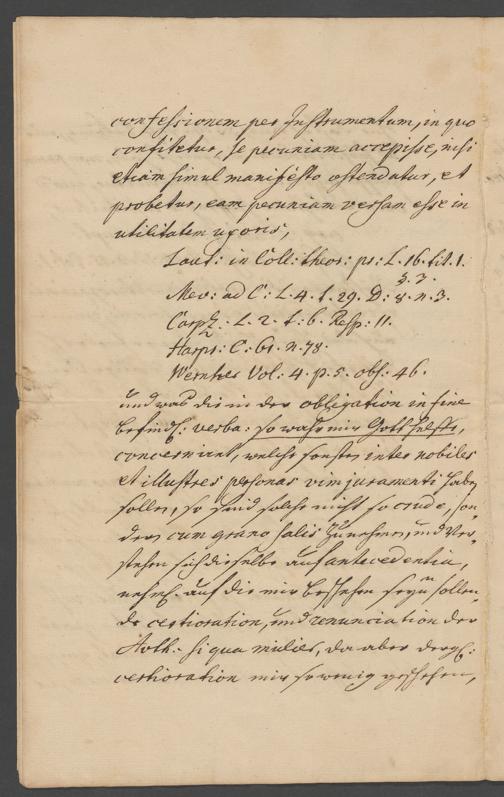 confessionem per Instrumentum, in quo
confitetur, se pecuniam accepisse, nisi
etiam simul manifesto ostendatur, et
probetur, eam pecuniam versam esse in
utilitatem uxoris,
Laut: in Coll: theor: pr: L. 16. tit. 1.
§. 7.
Mev: ad C: L. 4. t. 29. D: 8. n. 3.
Carpz. L. 2. t: 6. Resp: 11.
Harpr: C: 61. n. 78.
Wernher Vol: 4. p. 5. obs: 46.
und was die in der obligation in fine
befindl: verba: so wahr mir Gott helffe,
concerniret, welche sonsten inter nobiles
et illustres personas vim juramenti haben
sollen, so sind solche nicht so crude, son-
dern cum grano salis zu nehmen, und ver-
stehen sich dieselbe auf antecedentia,
nehml. auf die mir beschehen seyn sollen-
de certioration, und renunciation der
Auth: si qua mulier, da aber dergl:
certioration mir so wenig geschehen,